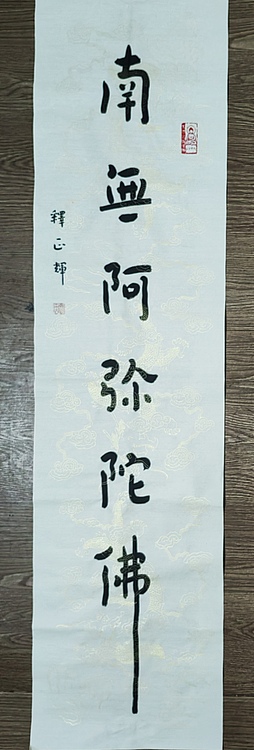 南無阿弥陀佛
釋正輝